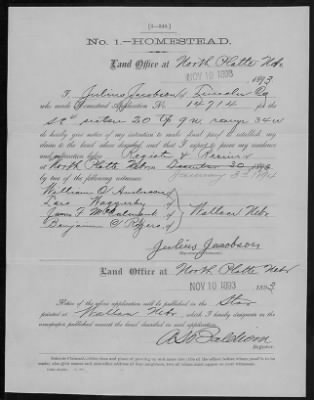 [4—348.]
No. 1.—HOMESTEAD.
Land Office at North Platte Nebr
NOV 10 1893, 1893
I, Julius Jacobson, Lincoln Co
who made Homestead Application No. 14714 for the
section 20 Tp 9 N. range 34 W
do hereby give notice of my intention to make final proof to establish my
claim to the land above described, and that I expect to prove my residence
and cultivation before Register & Receiver
at North Platte Nebr on December 20, 1893
January 3rd 1894
by two of the following witnesses:
William O Anderson
Lars
James F
Benjamin
of Wallace Nebr
Julius Jacobson
Land Office at North Platte Nebr
NOV 10 1893 1893.
Notice of the above application will be published in the Star
printed at Wallace Nebr, which I hereby designate as the
newspaper published nearest the land described in said application.
A S Baldwin
Register.